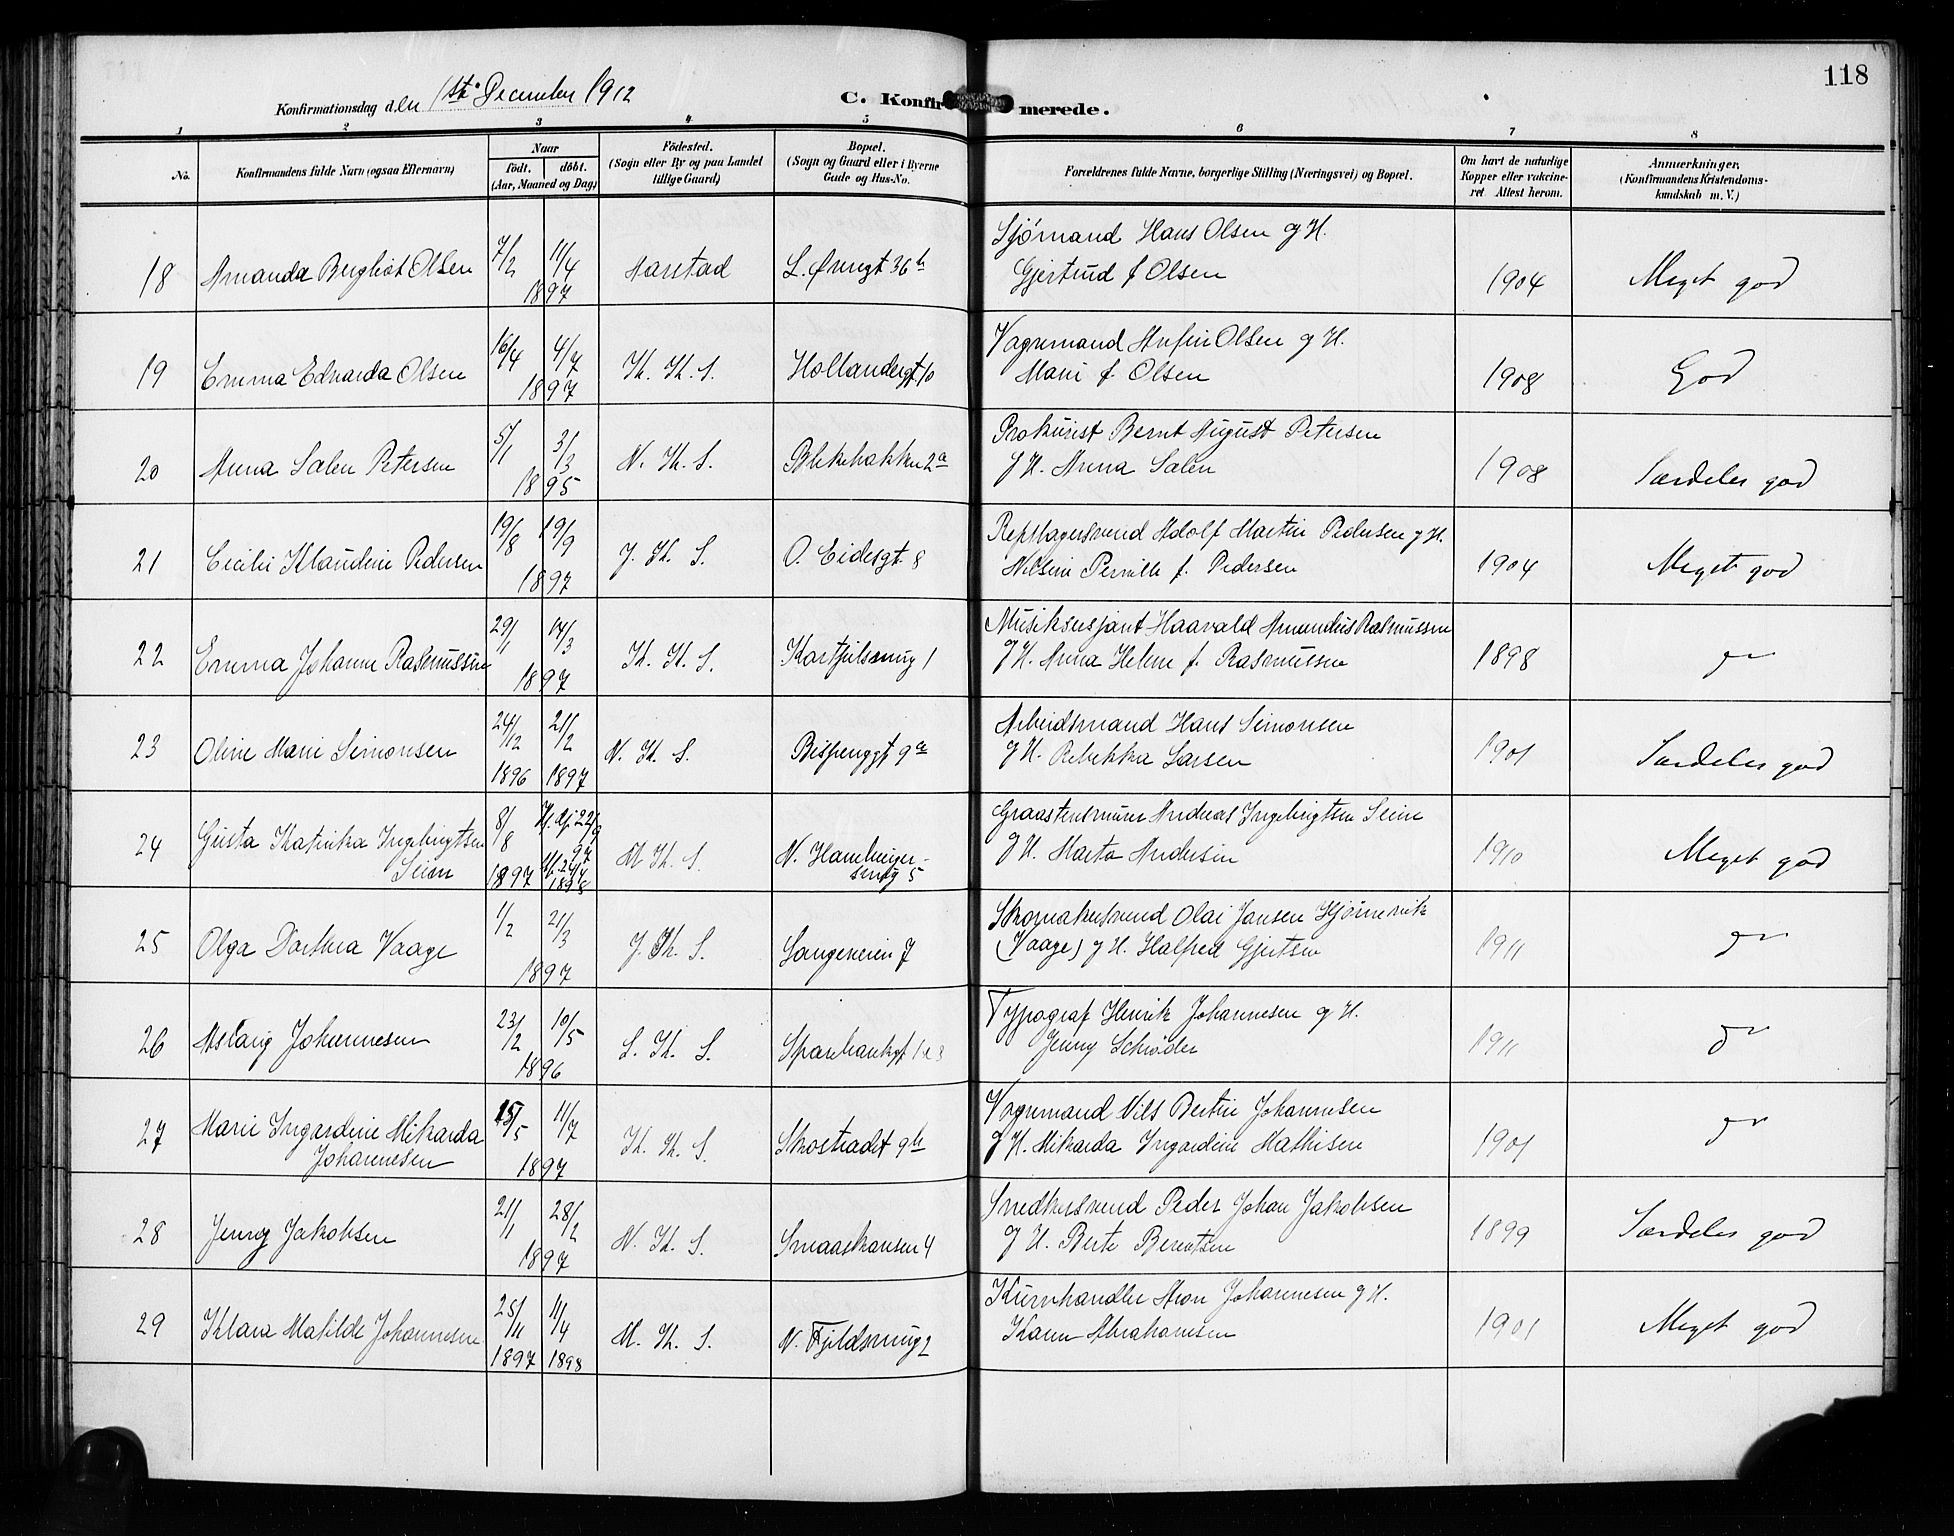 118
Konfirmationsdag den 1ste December 1912
C. Konfirmerede.
1 2 3 4 5 6 7 8
No.
Konfirmandens fulde Navn (ogsaa Efternavn)
Naar
født. døbt.
(Aar, Maaned og Dag)
Fødested.
(Sogn eller By og paa Landet
tillige Gaard)
Bopæl.
(Sogn og Gaard eller i Byerne
Gade og Hus-No.
Forældrenes fulde Navne, borgerlige Stilling (Næringsvei) og Bopæl.
Om havt de naturlige
Kopper eller vakcine-
ret Attest herom.
Anmærkninger.
(Konfirmandens Kristendoms-
kundskab m. V.)
18 Amanda Bergliot Olsen 7/2 11/4 1897 Harstad L. Øvregt 36b
Sjömand Hans Olsen g H.
Gjertrud f Olsen
1904 Meget god
19 Emma Edvarda Olsen 16/4 4/7 1897 K. K. S. Hollandergt 10
Vognmand Anfin Olsen g H.
Marie f. Olsen
1908 God
20 Anna Salen Petersen 5/1 3/3 1895 N. K. S. Blekebakken 2a
Prokurist Bernt August Petersen
g H. Anna Salen
1908 Særdeles god
21 Cecilie Klaudine Pedersen 19/8 19/9 1897 J. K. S. O. Eidesgt. 8
Repslagersvend Adolf Martin Pedersen g H.
Nilsine Pernille f. Pedersen
1904 Meget god
22 Emma Johanne Rasmussen 29/1 14/3 1897 K. K. S. Kortfilsmug 1
Musiksersjant Haavald Amandus Rasmussen
g H. Anna Helene f. Rasmussen
1898 do
23 Oline Marie Simonsen 24/12 1896 21/2 1897 N. K. S. Bispenggt 9a
Arbeidsmand Hans Simonsen
g H. Rebekka Larsen
1901 Særdeles god
24 Gusta Katinka Ingebrigtsen
Seim 8/8 1897 Hj. dj. 22/9 97
M. K. S. N. Hamburger-
smug 5
Graastensmurer Andreas Ingebrigtsen Seim
g H. Marta Andersen
1910 Meget god
25 Olga Dorthea Vaage 1/2 21/3 1897 J. K. S. Langeveien 7
Skomakersvend Olai Jansen Hjørnevik
(Vaage) g H. Halfred Gjertsen
1911 do
26 Aslaug Johannesen 23/2 10/5 1896 S. K. S.
Typograf Henrik Johannesen g H.
Jenny Schrøder
1911 do
27 Marie Ingardine Mikarda
Johannesen 15/5 11/7 1897 K. K. S. Skostrædet 9b
Vognmand Nils Bertin Johannesen
g H. Mikarda Ingardine Mathisen
1901 do
28 Jenny Jakobsen 21/1 28/2 1897 N. K. S. Smaaskansen 4
Snedkersvend Peder Johan Jakobsen
g H. Berte Berentsen
1899 Særdeles god
29 Klara Matilde Johannesen 25/11 1897 11/4 1898 M. K. S. N. Fjeldsmug 2
Kurvhandler Aron Johannesen g H.
Karen Abrahamsen
1901 Meget god